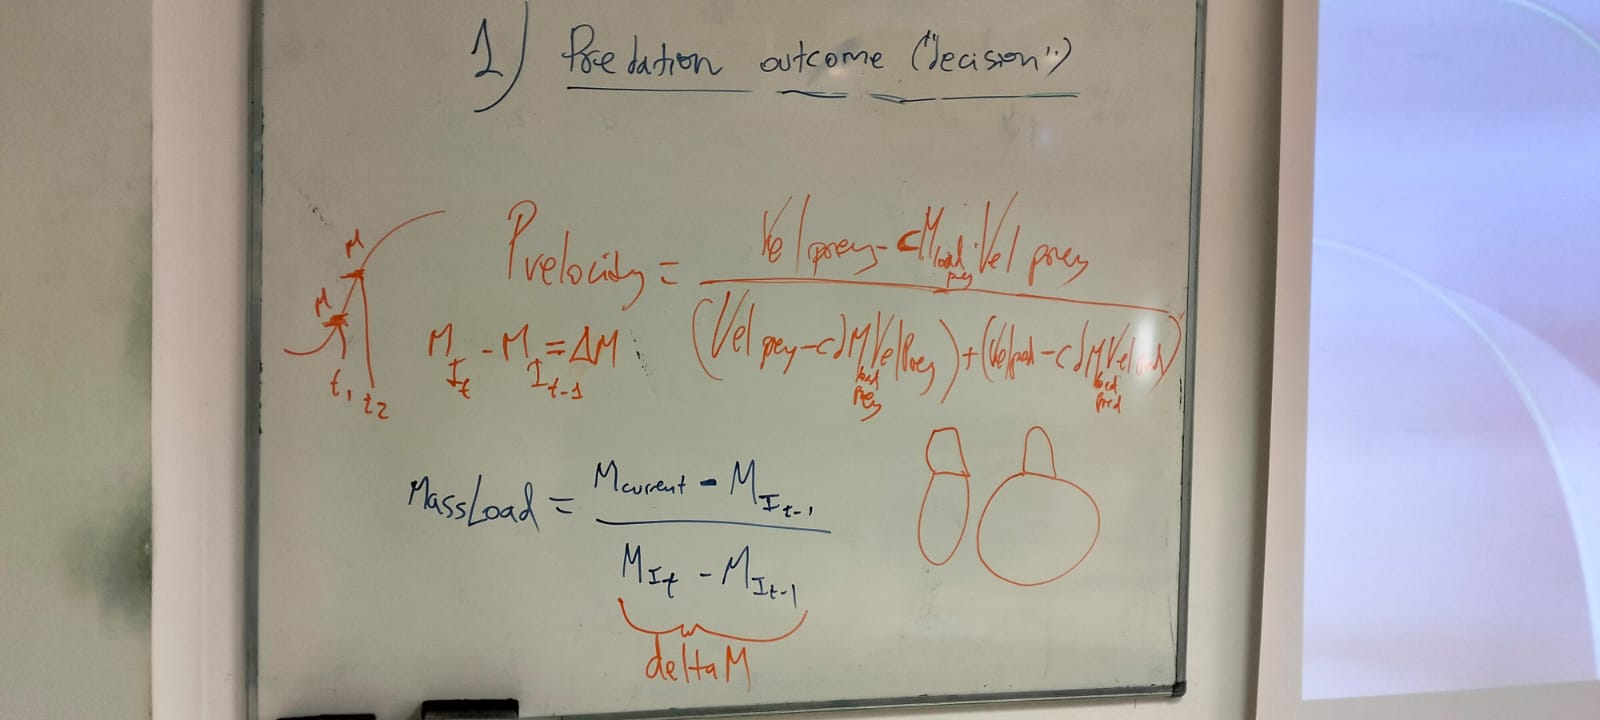 1) Predation outcome ("decision")
P velocity = Vel prey - cM load prey · Vel prey
(Vel prey - cdM load prey Vel Prey) + (Vel pred - cdM load pred Vel pred)
M
M
t1 t2
M I t - M I t-1 = ΔM
MassLoad = M current - M I t-1
M I t - M I t-1
deltaM